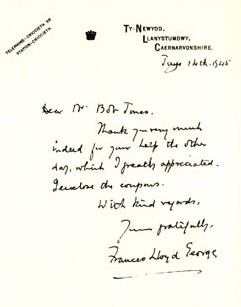 TELEPHONE:- CRICCIETH 98
STATION:- CRICCIETH.
TY-NEWYDD,
LLANYSTUMDWY,
CAERNARVONSHIRE.
June 14th. 1945
Dear Mr Bob Jones.
Thank you very much
indeed for your help the other
day, which I greatly appreciated.
I enclose the coupons.
With kind regards,
Yours gratefully,
Frances Lloyd George